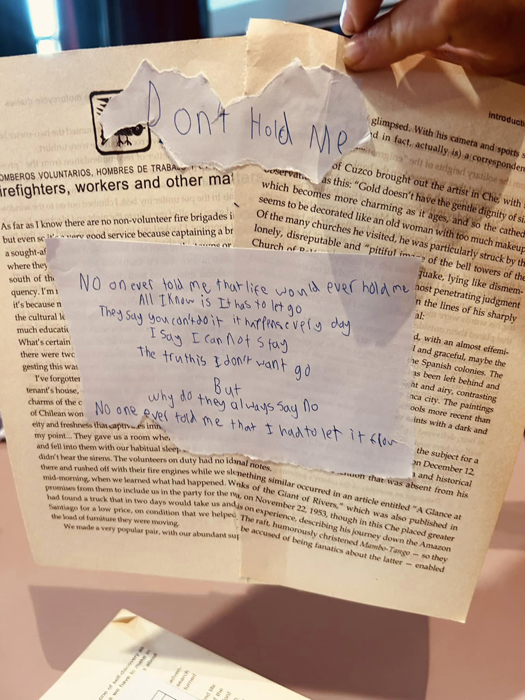 Don't Hold Me
No on ever told me that life would ever hold me
All I know is It has to let go
They say you can't do it it happens every day
I say I can not stay
The truth is I don't want go
But
why do they always say no
No one ever told me that I had to let it flow
OMBEROS VOLUNTARIOS, HOMBRES DE TRABA
irefighters, workers and other ma
As far as I know there are no non-volunteer fire brigades i
but even so very good service because captaining a br
a sought-af
where they
south of th
quency. I'm
it's because n
the cultural le
much educati
What's certain
there were tw
gesting this was
I've forgotten
tenant's house,
charms of the c
of Chilean won
eity and freshness that captivates imm
my point... They gave us a room whe
and fell into them with our habitual sleep
didn't hear the sirens. The volunteers on duty had no id
there and rushed off with their fire engines while we sle
mid-morning, when we learned what had happened. W
promises from them to include us in the party for the
had found a truck that in two days would take us and
Santiago for a low price, on condition that we helped
the load of furniture they were moving.
We made a very popular pair, with our abundant sup
introducti
glimpsed. With his camera and sports
d in fact, actually is) a corresponden
of Cuzco brought out the artist in Che, with
observat as this: "Gold doesn't have the gentle dignity of s
which becomes more charming as it ages, and so the cathed
seems to be decorated like an old woman with too much makeu
Of the many churches he visited, he was particularly struck by th
lonely, disreputable and "pitiful image of the bell towers of th
Church of
quake, lying like dismem
most penetrating judgment
n the lines of his sharply
al:
d, with an almost effemi-
l and graceful, maybe the
e Spanish colonies. The
as been left behind and
ht and airy, contrasting
nca city. The paintings
ools more recent than
ints with a dark and
the subject for a
n December 12
and historical
that was absent from his
nal notes.
ething similar occurred in an article entitled "A Glance at
nks of the Giant of Rivers," which was also published in
on November 22, 1953, though in this Che placed greater
is on experience, describing his journey down the Amazon
The raft, humorously christened Mambo-Tango — so they
be accused of being fanatics about the latter — enabled